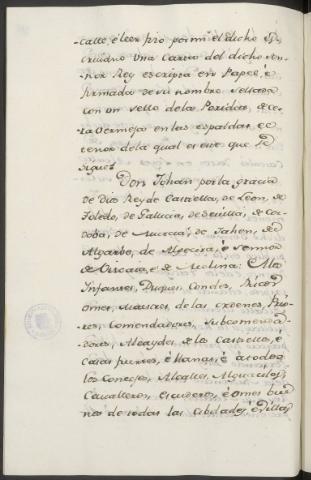 calle, é leer fizo por mi el dicho Es-
cribano una Carta del dicho Se-
ñor Rey escripta en Papel, e
firmada de su nombre, Sellada
con un sello de la Poridat, de ce-
ra vermeja en las espaldas, el
tenor de la qual es este que se
sigue:
Don Johan por la gracia
de Dios Rey de Castiella, de Leon, de
Toledo, de Gallicia, de Sevilla, de Cor-
doba, de Murcia, de Jahen, del
Algarbe, de Algecira, é Señor
de Vizcaia, e de Molina: A los
Infantes, Duques, Condes, Ricos
omes, Maestres de las ordenes, Prio-
res, Comendadores, Subcomenda-
dores, Alcaydes de los Castiellos, é
Casas fuertes, é llanas, é a todos
los Concejos, Alcalles, Alguaciles,
Cavalleros, Escuderos, é omes bue-
nos de todas las Cibdades, é Villas